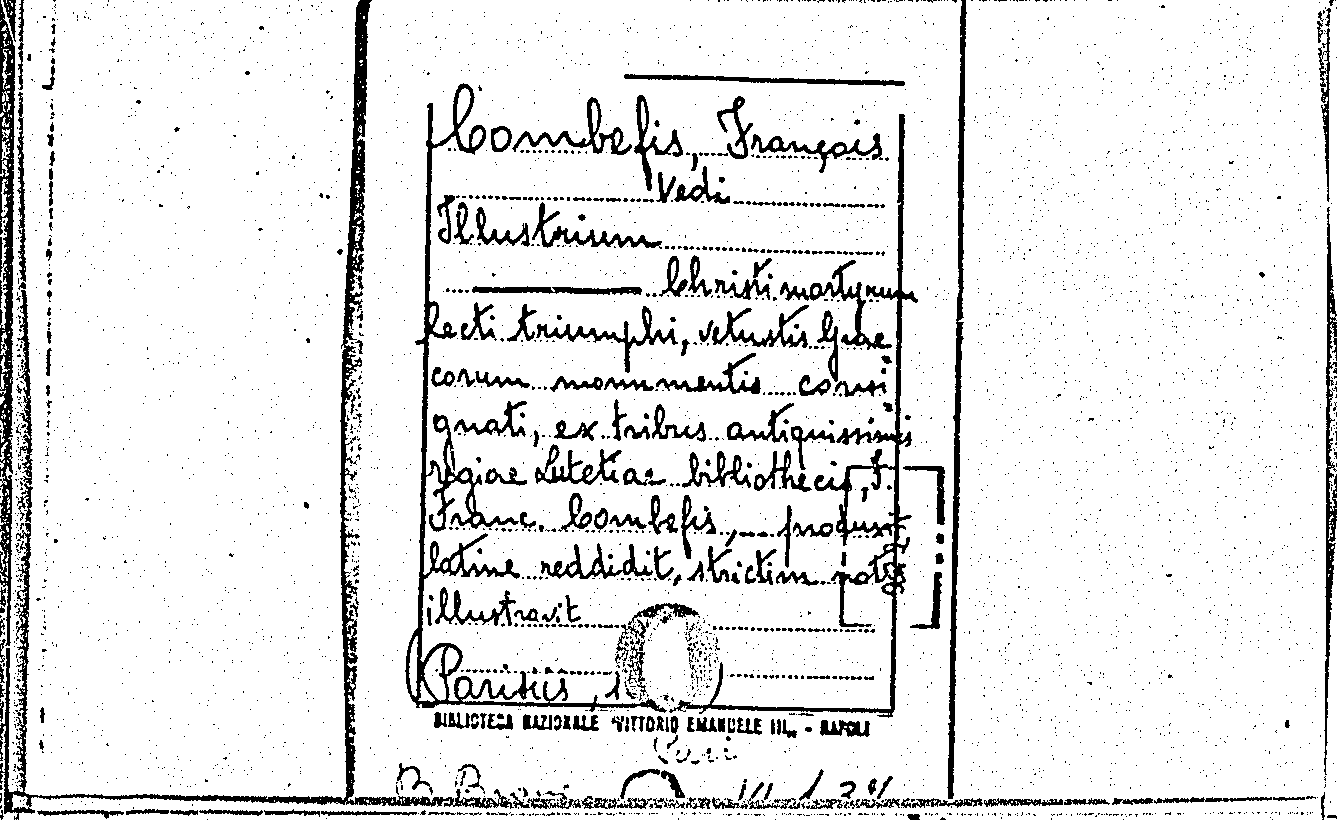 Combefis, François
Vedi
Illustrium
Christi martyrum
lecti triumphi, vetustis Grae
corum monumentis consi
gnati, ex tribus antiquissimis
regiae Lutetiae bibliothecis, F.
Franc. Combefis, ... produxit
latine reddidit, strictim notis
illustravit
(Parisiis, 1
BIBLIOTECA NAZIONALE "VITTORIO EMANUELE III„ - NAPOLI